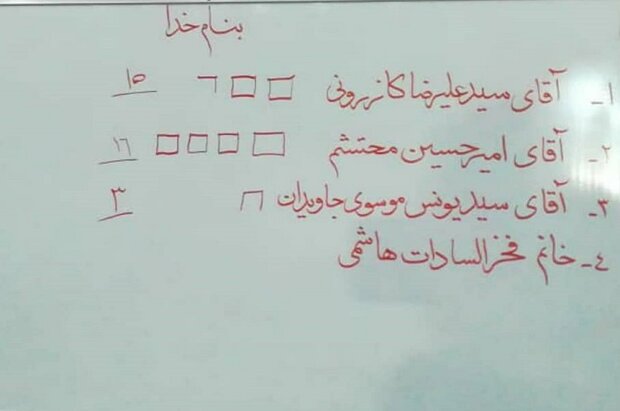 بنام خدا
۱- آقای سیدعلیرضا کازرونی ۱۰
۲- آقای امیرحسین محتشم ۱۶
۳- آقای سیدیونس موسوی جاویدان ۳
٤- خانم فخرالسادات هاشمی